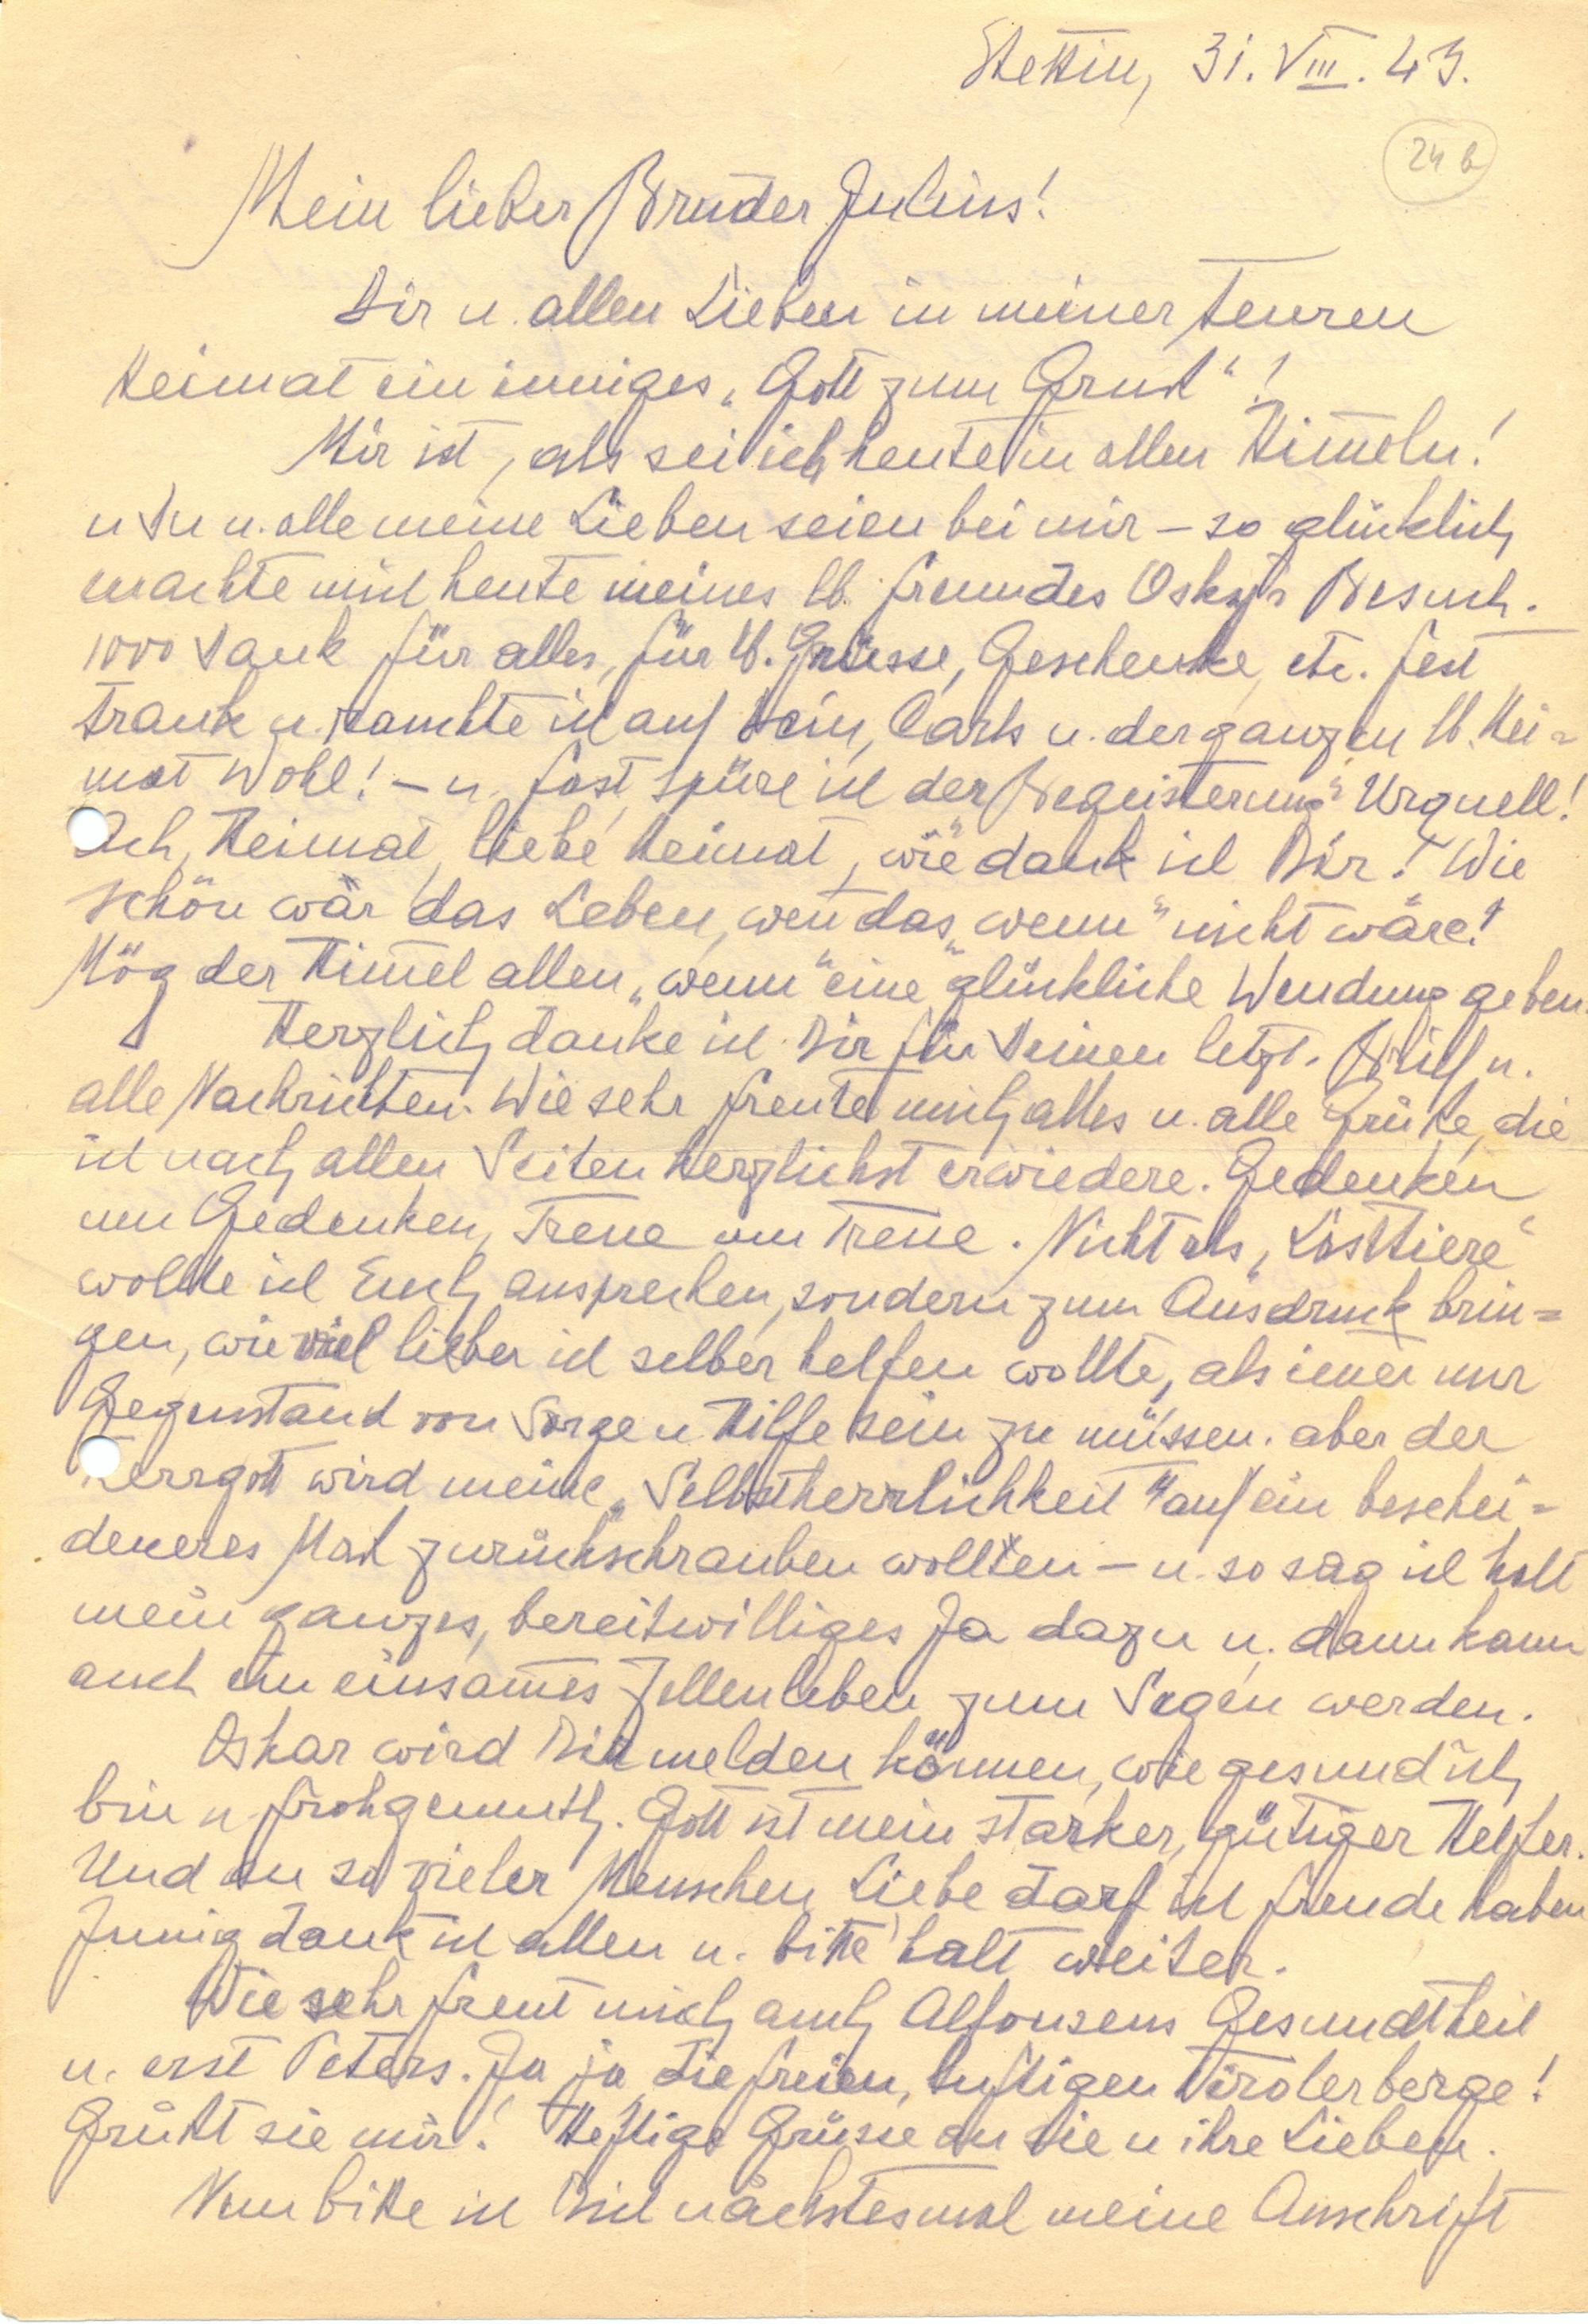 Stettin, 31. VIII. 43.
24 b
Mein lieber Bruder Julius!
Dir u. allen Lieben in meiner teuren
Heimat ein inniges „Gott zum Gruß"!
Mir ist, als sei ich heute in allen Himeln!
u Du u. alle meine Lieben seien bei mir – so glücklich
machte mich heute meines lb. Freundes Oskar's Besuch.
1000 Dank für alles, für lb. Grüsse, Geschenke, etc. fest
trank u. rauchte ich auf Dein, Carls u. der ganzen lb. Hei=
mat Wohl! – u. fast spüre ich der Begeisterung Urquell!
Ach, Heimat, liebe Heimat, wie dank ich Dir! Wie
schön wär das Leben, wen̄ das „wenn" nicht wäre!
Mög der Him̄el allen „wenn" eine glückliche Wendung geben.
Herzlich danke ich Dir für Deinen letzt. Brief u.
alle Nachrichten. Wie sehr freute mich alles u. alle Grüße, die
ich nach allen Seiten herzlichst erwiedere. Gedenken
um Gedenken, Treue um Treue. Nicht als „Lasttiere"
wollte ich Euch ansprechen, sondern zum Ausdruck brin=
gen, wie viel lieber ich selber helfen wollte, als im̄er nur
Gegenstand von Sorge u Hilfe sein zu müssen. aber der
Herrgott wird meine „Selbstherrlichkeit" auf ein beschei=
deneres Maß zurückschrauben wollen – u. so sag ich halt
mein ganzes, bereitwilliges Ja dazu u. dann kann
auch ein einsames Zellenleben zum Segen werden.
Oskar wird Dir melden können, wie gesund ich
bin u. frohgemuth. Gott ist mein starker, gütiger Helfer.
Und an so vieler Menschen Liebe darf ich Freude haben
Innig dank ich allen u. bitte halt weiter.
Wie sehr freut mich auch Alfonsens Gesundtheit
u. erst Peters. Ja ja die freien, luftigen Tirolerberge!
Grüßt sie mir! Heftige Grüsse an sie u ihre Lieben.
Nun bitte ich Dich nächstesmal meine Anschrift